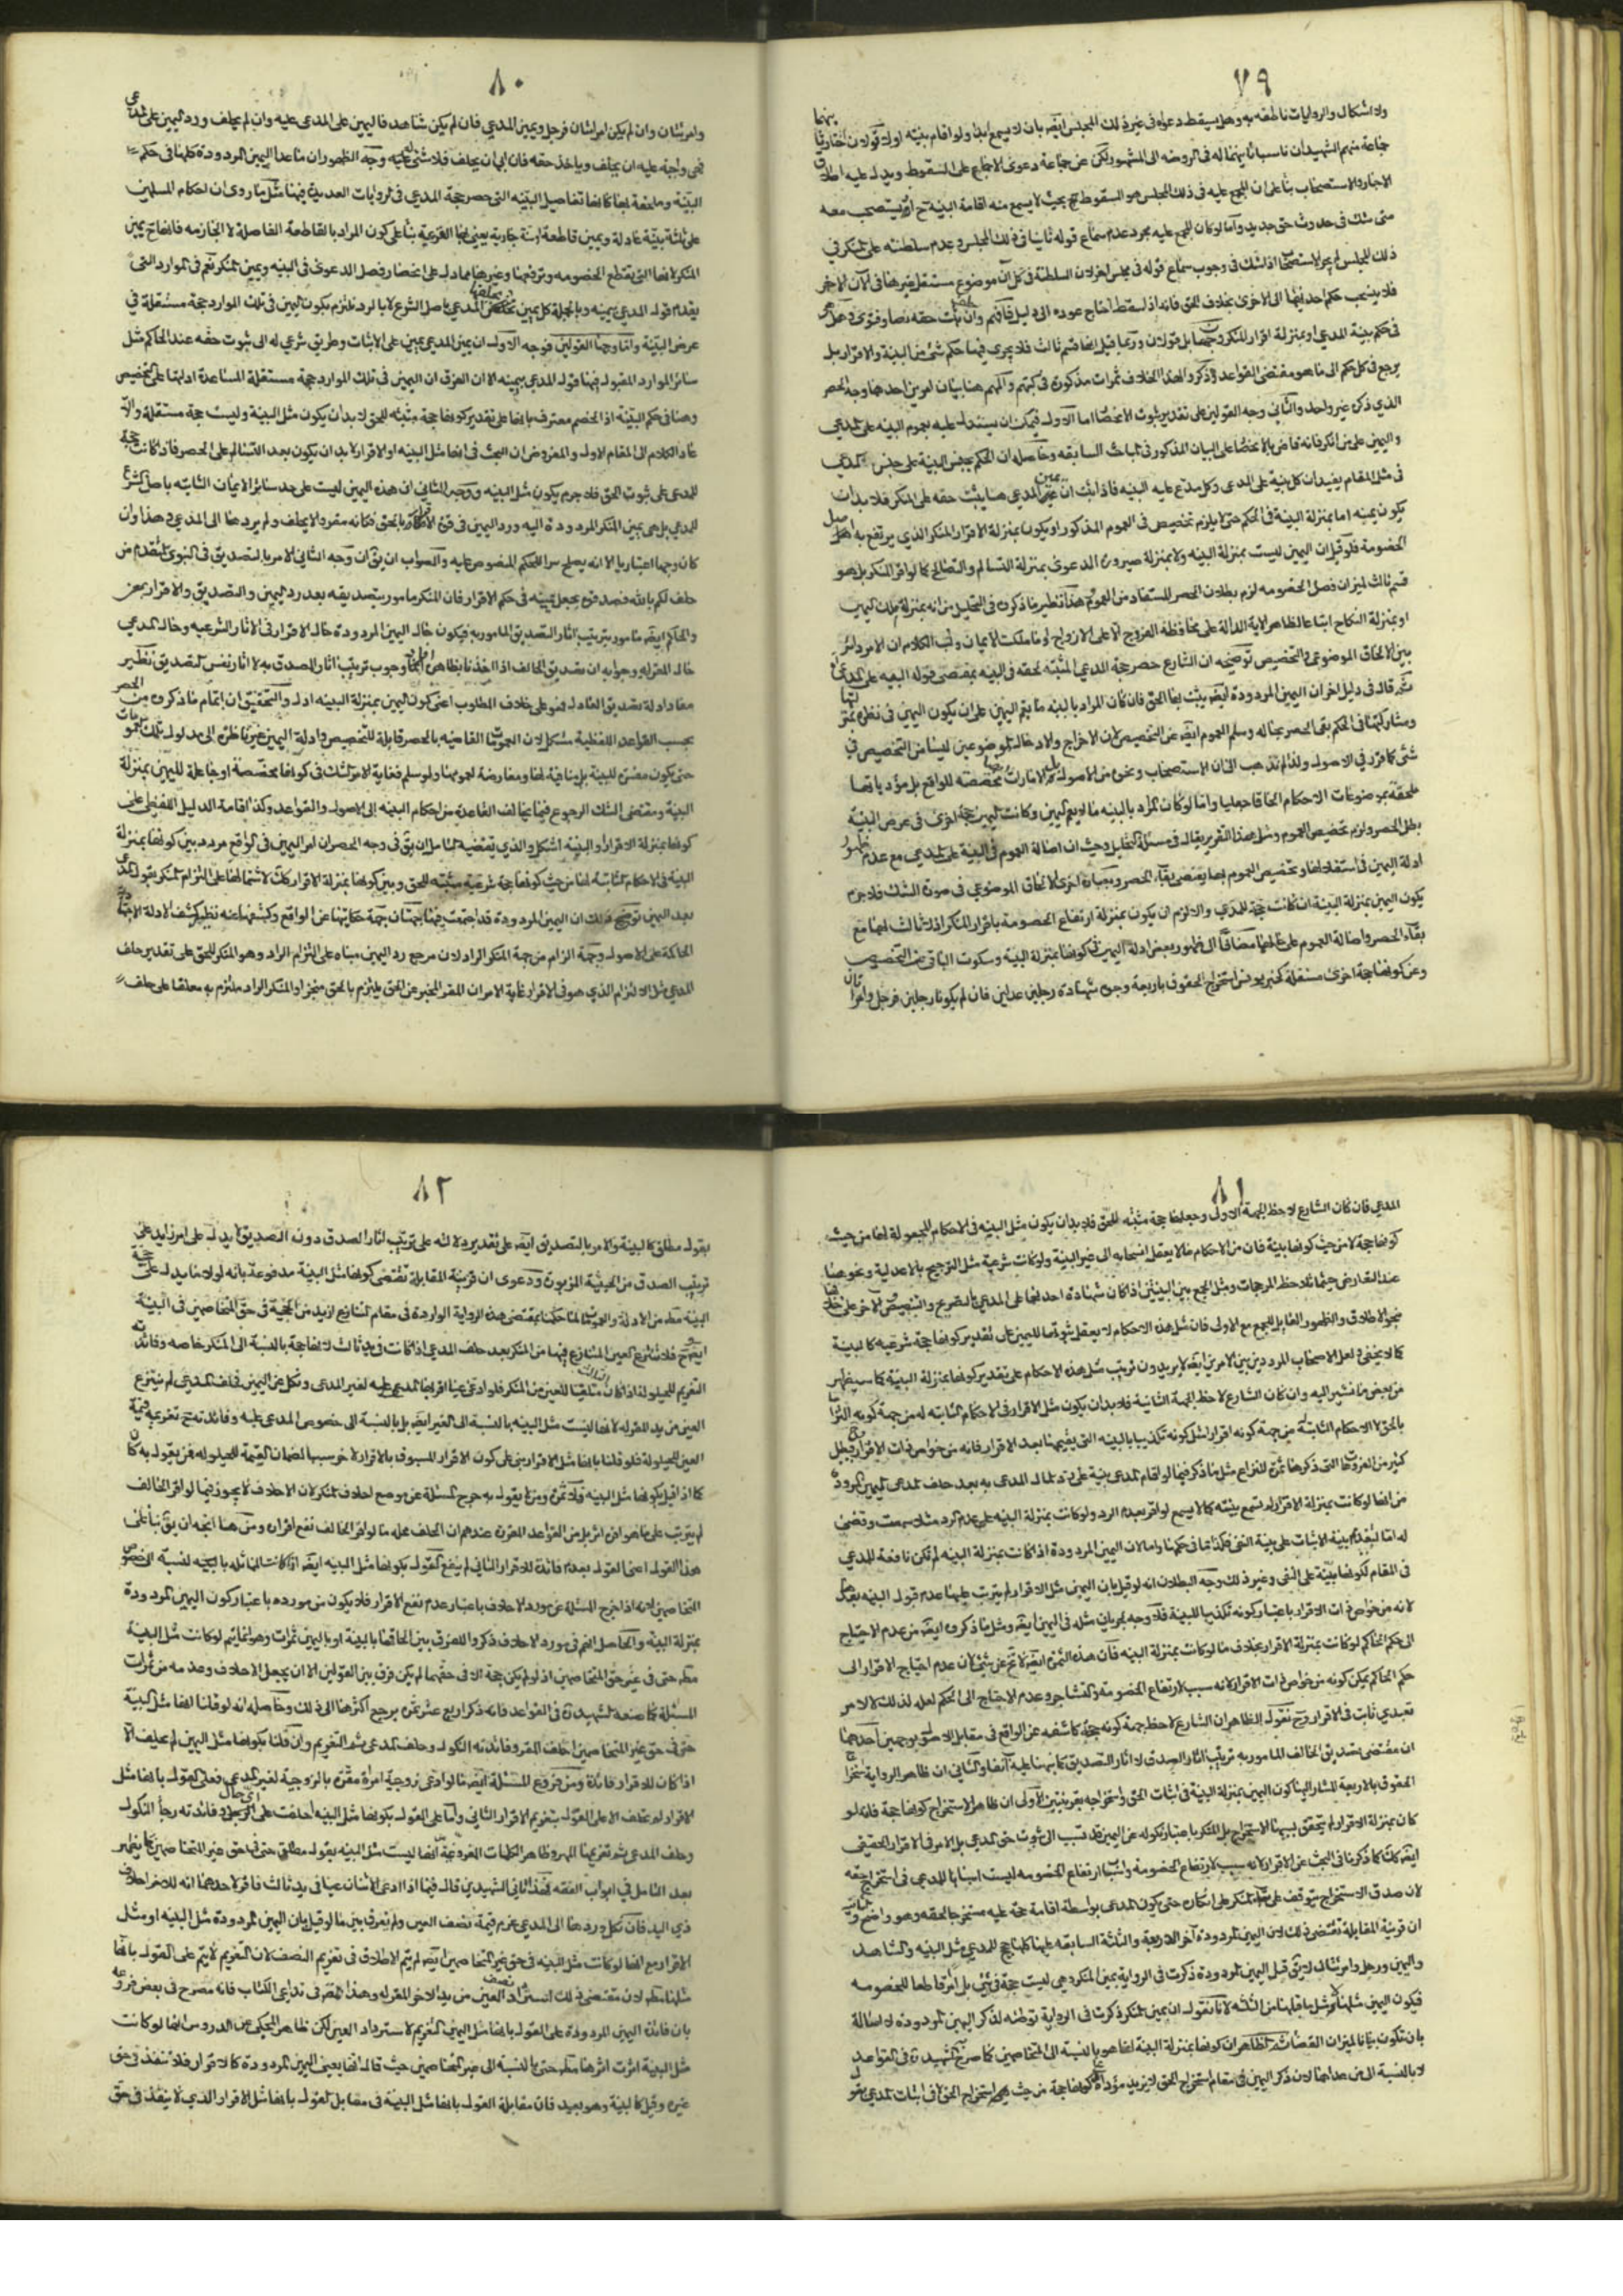 ٧٩
ولا اشكال والروايات ناطقة به وهل يسقط دعواه فى غير ذلك المجلس ايضا بان لا يسمع ابدا ولو اقام بينة او لا قولان اختار ثانيهما
جماعة منهم الشهيدان ناسبا ثانيهما له فى الروضه الى المشهور لكن عن جماعة دعوى الاجماع على السقوط ويدل عليه اطلاق
الاخبار والاستصحاب بناء على ان المجمع عليه فى ذلك المجلس هو السقوط بحيث لا يسمع منه اقامة البينة فيستصحب معه
متى شك فى حدوث حق جديد واما لو كان المجمع عليه مجرد عدم سماع قوله ثانيا فى ذلك المجلس وعدم سلطنته على المنكر فى
ذلك المجلس لم يجر الاستصحاب اذ الشك فى وجوب سماع قوله فى مجلس اخر لان السلطنة فى كل آن موضوع مستقل غيرها فى الآن الاخر
فلا يستصحب حكم احديهما الى الاخرى بخلاف الحق فانه اذا سقط احتاج عوده الى دليل فافهم وان ثبت حقه نصا وفتوى
فى حكم بينة المدعى او بمنزلة اقرار المنكر قولان وربما قيل انها قسم ثالث فلا يجرى فيها حكم شئ من البينة والاقرار بل
يرجع فى كل حكم الى ما هو مقتضى القواعد وذكروا لهذا الخلاف ثمرات مذكورة فى كتبهم والمهم هنا بيان امرين احدهما وجه الحصر
الذي ذكره غير واحد والثانى وجه القولين على تقدير ثبوت الانحصار اما الاول فيمكن ان يستدل عليه بعموم البينه على المدعى
واليمين على من انكر فانه قاض بالانحصار على البيان المذكور فى المباحث السابقه وحاصله ان الحكم بجنس البينة على جنس المدعى
فى مثل المقام يفيد ان كل بينة على المدعى وكل مدع عليه البينه فاذا ثبت ان يمين المدعى هنا يثبت حقه على المنكر فلا بد ان
يكون يمينه اما بمنزلة البينة فى الحكم حتى لا يلزم تخصيص فى العموم المذكور او يكون بمنزلة الاقرار المنكر الذي يرتفع به اصل
الخصومة فلو قيل ان اليمين ليست بمنزلة البينه ولا بمنزلة صيرورة الدعوى بمنزلة التسالم والتصالح كما لو اقر المنكر بل هو
قسم ثالث لميزان فصل الخصومه لزم بطلان الحصر المستفاد من العموم هذا نظير ما ذكروه فى التحليل من انه بمنزلة ملك اليمين
او بمنزلة النكاح اتباعا لظاهر الاية الدالة على محافظة الفروج الا على الازواج او ما ملكت الايمان ولب الكلام ان الامر دائر
بين الالحاق الموضوعى والتخصيص توضيحه ان الشارع حصر حجة المدعى المثبته لحقه فى البينه بمقتضى قوله البينه على المدعى
ثم قال فى دليل اخر ان اليمين المردودة ايضا يثبت بها الحق فان كان المراد بالبينه ما يعم اليمين على ان يكون اليمين فى نظره بمنزلتها
ومشاركتها فى الحكم بقى الحصر بحاله وسلم العموم ايضا عن التخصيص لان الاخراج والادخال الموضوعيين ليسا من التخصيص فى
شئ كما قرر فى الاصول ولذا لم نذهب الى ان الاستصحاب ونحوه من الاصول بل الامارات مخصصة للواقع بل مؤدياتها
ملحقة بموضوعات الاحكام الحاقا جعليا واما لو كان المراد بالبينه ما لا يعم اليمين وكانت اليمين حجة اخرى فى عرض البينة
بطل الحصر ولزم تخصيص العموم ومثل هذا التقرير يقال فى مسئلة التحليل وحيث ان اصالة العموم فى البينة على المدعى مع عدم ظهور
ادلة اليمين فى استقلالها وتخصيص العموم بها يقتضى بقاء الحصر وبعبارة اخرى الالحاق الموضوعى فى صورة الشك فلا جرم
يكون اليمين بمنزلة البينة ان كانت حجة للمدعى والا لزم ان يكون بمنزلة ارتفاع الخصومة باقرار المنكر اذ لا ثالث لهما مع
بقاء الحصر واصالة العموم على حالهما مضافا الى ظهور بعض ادلة اليمين فى كونها بمنزلة البينة وسكوت الباقى عن التخصيص
وعن كونها حجة اخرى مستقلة كخبر يونس استخراج الحقوق باربعة وجوه شهادة رجلين عدلين فان لم يكونا رجلين فرجل وامرأتان
٨٠
وامرأتان وان لم يكن امرأتان فرجل ويمين المدعى فان لم يكن شاهد فاليمين على المدعى عليه وان لم يحلف ورد اليمين على المدعى
فهى واجبة عليه ان يحلف وياخذ حقه فان ابى ان يحلف فلا شئ عليه وجه الظهور ان ما عدا اليمين المردودة كلها فى حكم
البينة وملحقة بها كما انها تفاصيل البينه التى حصر حجة المدعى فى الروايات العديدة فيها مثل ما روى ان احكام المسلمين
على ثلثة بينة عادلة ويمين قاطعة او سنة جارية يعنى بها القرعة بناء على كون المراد بالقاطعة الفاصلة لا الجازمه فانها تح يمين
المنكر لانها التى يقتطع الخصومه وترفعها وغيرها مما دل على انحصار فصل الدعوى فى البينه ويمين المنكر نعم فى الموارد التى
يقدم قول المدعى بيمينه وبالجملة كل يمين يحلفها المدعى باصل الشرع لا بالرد نلتزم بكون اليمين فى تلك الموارد حجة مستقلة فى
عرض البينة واما وجها القولين فوجه الاول ان يمين المدعى يمين على الاثبات وطريق شرعى له الى ثبوت حقه عند الحاكم مثل
سائر الموارد المقبول فيها قول المدعى بيمينه الا ان الفرق ان اليمين فى تلك الموارد حجة مستقلة لمساعدة ادلتها على التخصيص
وهنا فى حكم البينة اذ الخصم معترف بانها على تقدير كونها حجة مثبته للحق لا بد ان يكون مثل البينة وليست حجة مستقلة والا
عاد الكلام الى المقام الاول والمفروض ان البحث فى انها مثل البينه او الاقرار لا بد ان يكون بعد التسالم على الحصر فاذا كانت حجة
للمدعى على ثبوت الحق فلا جرم يكون مثل البينه ووجه الثانى ان هذه اليمين ليست على حد سائر الايمان الثابته باصل الشرع
للمدعى بل هى يمين المنكر المردودة اليه ورد اليمين فى قوة الاقرار بالحق فكانه مقر ولا يحلف ولم يردها الى المدعى وهذا وان
كان وجها اعتباريا الا انه يصلح سرا للحكم المنصوص عليه والصواب ان يق ان وجه الثانى الامر بالتصديق فى النبوى المتقدم من
حلف لكم بالله فصدقوه يجعل يمينه فى حكم الاقرار فان المنكر مامور بتصديقه بعد رد اليمين والتصديق والاقرار بمعنى
والحاكم ايضا مامور بترتيب اثار التصديق المامور به فيكون حال اليمين المردودة حال الاقرار فى الاثار الشرعيه وحال المدعى
حال المقر له وجوابه ان تصديق الحالف اذا اخذنا بظاهره وجوب ترتيب اثار الصدق به لا اثار نفس التصديق نظير
مفاد ادلة تصديق العادل فهو على خلاف المطلوب اعنى كون اليمين بمنزلة البينه ادل والتحقيق ان اتمام ما ذكروه من الحصر
بحسب القواعد اللفظية مشكل لان العمومات القاضيه بالحصر قابلة للتخصيص وادلة اليمين غير ناظرة الى مدلول تلك العمومات
حتى يكون مفسرة للبينة بل منافية لها ومعارضة لعمومها ولو سلم فغاية الامر الشك فى كونها مخصصة او جاعلة لليمين بمنزلة
البينة ومقتضى الشك الرجوع فيما يخالف القاعدة من احكام البينه الى الاصول والقواعد وكذا اقامة الدليل اللفظى على
كونها بمنزلة الاقرار والبينه اشكل والذي يقتضيه التامل ان يق فى وجه الحصر ان امر اليمين فى الواقع مردد بين كونها بمنزلة
البينة فى الاحكام الثابتة لها من حيث كونها حجة شرعية مثبته للحق وبين كونها بمنزلة الاقرار لاشتمالها على التزام المنكر بقول المدعى
بعد اليمين توضيح ذلك ان اليمين المردودة قد اجتمعت فيها جهتان جهة حكايتها عن الواقع وكشفها عنه نظير كشف الادلة الاجتهادية
الحاكمة على الاصول وجهة الزام من جهة المنكر الراد لان مرجع رد اليمين مبناه على التزام الراد وهو المنكر للحق على تقدير حلف
المدعى مثل الالتزام الذي هو فى الاقرار غاية الامر ان المقر المخبر عن الحق يلتزم بالحق منجزا والمنكر الراد ملتزم به معلقا على حلف
٨١
المدعى فان كان الشارع لاحظ الجهة الاولى وجعلها حجة مثبته للحق فلا بد ان يكون مثل البينه فى الاحكام المجعولة لها من حيث
كونها حجة لا من حيث كونها بينة فان من الاحكام ما لا يعقل انسحابه الى غير البينة ولو كانت شرعية مثل الترجيح بالاعدلية ونحوها
عند التعارض حيثما نلاحظ المرجحات ومثل الجمع بين البينتين اذا كان شهادة احدهما على المدعى بالتصريح والتنصيص والاخر على خلافها
بنحو الاطلاق والظهور القابل للجمع مع الاولى فان مثل هذه الاحكام لا يعقل ثبوتها لليمين على تقدير كونها حجة شرعيه كالبينة
كما لا يخفى ولعل الاصحاب المرددين بين الامرين ايضا لا يريدون ترتيب مثل هذه الاحكام على تقدير كونها بمنزلة البينة كما سيظهر
من بعض ما نشير اليه وان كان الشارع لاحظ الجهة الثانية فلا بد ان يكون مثل الاقرار فى الاحكام الثابته له من جهة كونه التزاما
بالحق لا الاحكام الثابتة من جهة كونه اقرارا مثل كونه تكذيبا بالبينه التى يقيمها بعد الاقرار فانه من خواص ذات الاقرار فبطل
كثير من الفروعات التى ذكروها ثمرة للنزاع مثل ما ذكر فيما لو اقام المدعى بينة على رد المال المدعى به بعد حلف المدعى اليمين المردودة
من انها لو كانت بمنزلة الاقرار لم تسمع بينته كما لا يسمع لو اقر بعدم الرد ولو كانت بمنزلة البينه على عدم الرد مثلا سمعت وقضى
له اما لتقديم بينة الاثبات على بينة النفى فكذا ما فى حكمها واما لان اليمين المردودة اذا كانت بمنزلة البينه لم تكن نافعة للمدعى
فى المقام لكونها بينة على النفى وغير ذلك وجه البطلان انه لو قيل بان اليمين مثل الاقرار لم يترتب عليها عدم قبول البينه بعدها
لانه من خواص ذات الاقرار باعتبار كونه تكذيبا للبينة فلا وجه لجريان مثله فى اليمين ايضا ومثل ما ذكروه ايضا من عدم الاحتياج
الى حكم الحاكم لو كانت بمنزلة الاقرار بخلاف ما لو كانت بمنزلة البينه فان هذه الثمرة ايضا لا تخ عن شئ لان عدم احتياج الاقرار الى
حكم الحاكم يمكن كونه من خواص ذات الاقرار لانه سبب لارتفاع الخصومة والتشاجر وعدم الاحتياج الى الحكم لعله لذلك لا لامر
تعبدي ثابت فى الاقرار وح نقول الظاهر ان الشارع لاحظ جهة كونه حجة كاشفه عن الواقع فى مقابل الاصول لوجهين احدهما
ان مقتضى تصديق الحالف المامور به ترتيب اثار الصدق لا اثار التصديق كما نبهنا عليه آنفا والثانى ان ظاهر الرواية استخراج
الحقوق بالاربعة المشار اليها كون اليمين بمنزلة البينة فى اثبات الحق واستخراجه بقرينتين الاولى ان ظاهر الاستخراج كونها حجة فانه لو
كان بمنزلة الاقرار لم يتحقق بسببها الاستخراج بل المنكر باعتبار نكوله عن اليمين قد تسبب الى ثبوت حق المدعى بل الامر فى الاقرار الحقيقى
ايضا كك كما ذكرنا فى البحث عن الاقرار لانه سبب لارتفاع الخصومة واسباب ارتفاع الخصومه ليست اسبابا للمدعى فى استخراج حقه
لان صدق الاستخراج يتوقف على بقاء المنكر على انكاره حتى يكون المدعى بواسطة اقامة حجة عليه مستخرجا لحقه وهو واضح والثانية
ان قرينة المقابلة تقتضى ذلك لان اليمين المردودة آخر الاربعة والثلثة السابقه عليها كلها حجج للمدعى مثل البينه والشاهد
واليمين ورجل وامرأتان لا يق قبل اليمين المردودة ذكرت فى الرواية يمين المنكر وهى ليست حجة فى شئ بل امر قاطعا للخصومه
فيكون اليمين مثلها لا مثل ما قبلها من الثلثة لانا نقول ان يمين المنكر ذكرت فى الرواية توطئه لذكر اليمين المردودة لا اصالة
بان تكون بيانا لميزان القضاء ثم الظاهر ان كونها بمنزلة البينة انما هو بالنسبة الى المتخاصمين كما صرح الشهيد ره فى القواعد
لا بالنسبة الى من عداهما لان ذكر اليمين فى مقام استخراج الحق لا يزيد مؤداه كونها حجة من حيث استخراج الحق لا فى اثبات المدعى بقول
٨٢
بقول مطلق كالبينة والامر بالتصديق ايضا على تقدير دلالته على ترتيب اثار الصدق دون التصديق لا يدل على امر زايد على
ترتيب الصدق من الحيثية المزبورة ودعوى ان قرينة المقابلة تقتضى كونها مثل البينة مدفوعة بانه لولا ما يدل على حجية
البينة مط من الادلة والعمومات لما حكمنا بمقتضى هذه الرواية الواردة فى مقام التنازع ازيد من الحجية فى حق المتخاصمين فى البينة
ايضا فح فلا تنتزع العين المتنازع فيها من المنكر بعد حلف المدعى اذا كانت فى يد ثالث لانها حجة بالنسبة الى المنكر خاصه وفائدته
التغريم للحيلولة اذا كان الثالث متلقيا للعين من المنكر فلو ادعى عينا اقر بها المدعى عليه لغير المدعى ونكل عن اليمين فحلف المدعى لم ينتزع
العين من يد المقر له لانها ليست مثل البينه بالنسبة الى الغير ايضا بل بالنسبة الى خصوص المدعى عليه وفائدته تح تغريمه قيمة
العين للحيلولة فلو قلنا بانها مثل الاقرار بنى على كون الاقرار المسبوق بالاقرار لاخر سببا لضمان القيمة للحيلولة فمن يقول به كان
كما اذا قيل بكونها مثل البينه فلا ثمرة ومن لا يقول به خرج المسئلة عن موضع الخلاف المنكر لان الاحلاف لا يجوز فيما لو اقر الحالف
لم يترتب على ما هو اقر به اثر بل من القواعد المقررة عندهم ان الحلف محله ما لو اقر الحالف نفع اقراره ومن هنا اتجه ان يق بناء على
هذا القول اعنى القول بعدم فائدة للاقرار الثانى لم ينفع القول بكونها مثل البينه ايضا اذا كانت المماثله بالبينه لنسبة الى خصوص
المتخاصمين لانه اذا خرج المسئلة عن مورد الاحلاف باعتبار عدم نفع الاقرار فلا يكون من مورده باعتبار كون اليمين المردودة
بمنزلة البينه والحاصل انهم فى مورد الاحلاف ذكروا للفرق بين الحاقها بالبينة او باليمين ثمرات وهو انما يتم لو كانت مثل البينة
مط حتى فى غير حق المتخاصمين اذ لو لم يكن حجة الا فى حقهما لم يكن فرق بين القولين الا ان يجعل الاحلاف وعدمه من ثمرات
المسئلة كما صنعه الشهيد ره فى القواعد فانه ذكر اربع عشر ثمرة يرجع اكثرها الى ذلك وحاصله انه لو قلنا انها مثل البينة
حتى فى حق غير المتخاصمين احلف المقر وفائدته النكول وحلف المدعى ثم التغريم وان قلنا بكونها مثل اليمين لم يحلف الا
اذا كان للاقرار فائدة ومن فروع المسئلة ايضا ما لو ادعى زوجية امراة مقرة بالزوجية لغير المدعى فعلى القول بانها مثل
الاقرار لم تحلف الا على القول بتغريم الاقرار الثانى واما على القول بكونها مثل البينه احلفت على اى حال وفائدته رجاء النكول
وحلف المدعى ثم تغريمها المهر وظاهر الكلمات انها ليست مثل البينه بقول مطلق حتى فى حق غير المتخاصمين كما يظهر
بعد التامل فى ابواب الفقه فهذا ثانى الشهيدين قال فيما اذا ادعى الاثنان عينا فى يد ثالث فاقر لاحدهما انه للاخر احلاف
ذي اليد فان نكل وردها الى المدعى غرم قيمة نصف العين ولم يفرق بين ما لو قيل بان اليمين المردودة مثل البينه او مثل
الاقرار مع انها لو كانت مثل البينه فى حق غير المتخاصمين ايضا لم يتم الاطلاق فى تغريم النصف لان التغريم لا يتم على القول بانها
مثلها مط لان مقتضى ذلك استرداد نصف العين من يد الاخر المقر له وهذا ظهر فى تداعى الكتاب فانه مصرح فى بعض فروعه
بان فائدة اليمين المردودة على القول بانها مثل اليمين التغريم لا استرداد العين لكن ظاهر المحكى عن الدروس انها لو كانت
مثل البينة اثرت اثرها مط حتى بالنسبة الى غير المتخاصمين حيث قال انها يعنى اليمين المردودة كالاقرار فلا تنفذ فى حق
غيره وقيل كالبينة وهو بعيد فان مقابلة القول بانها مثل البينة فى مقابل القول بانها مثل الاقرار الذي لا ينفذ فى حق